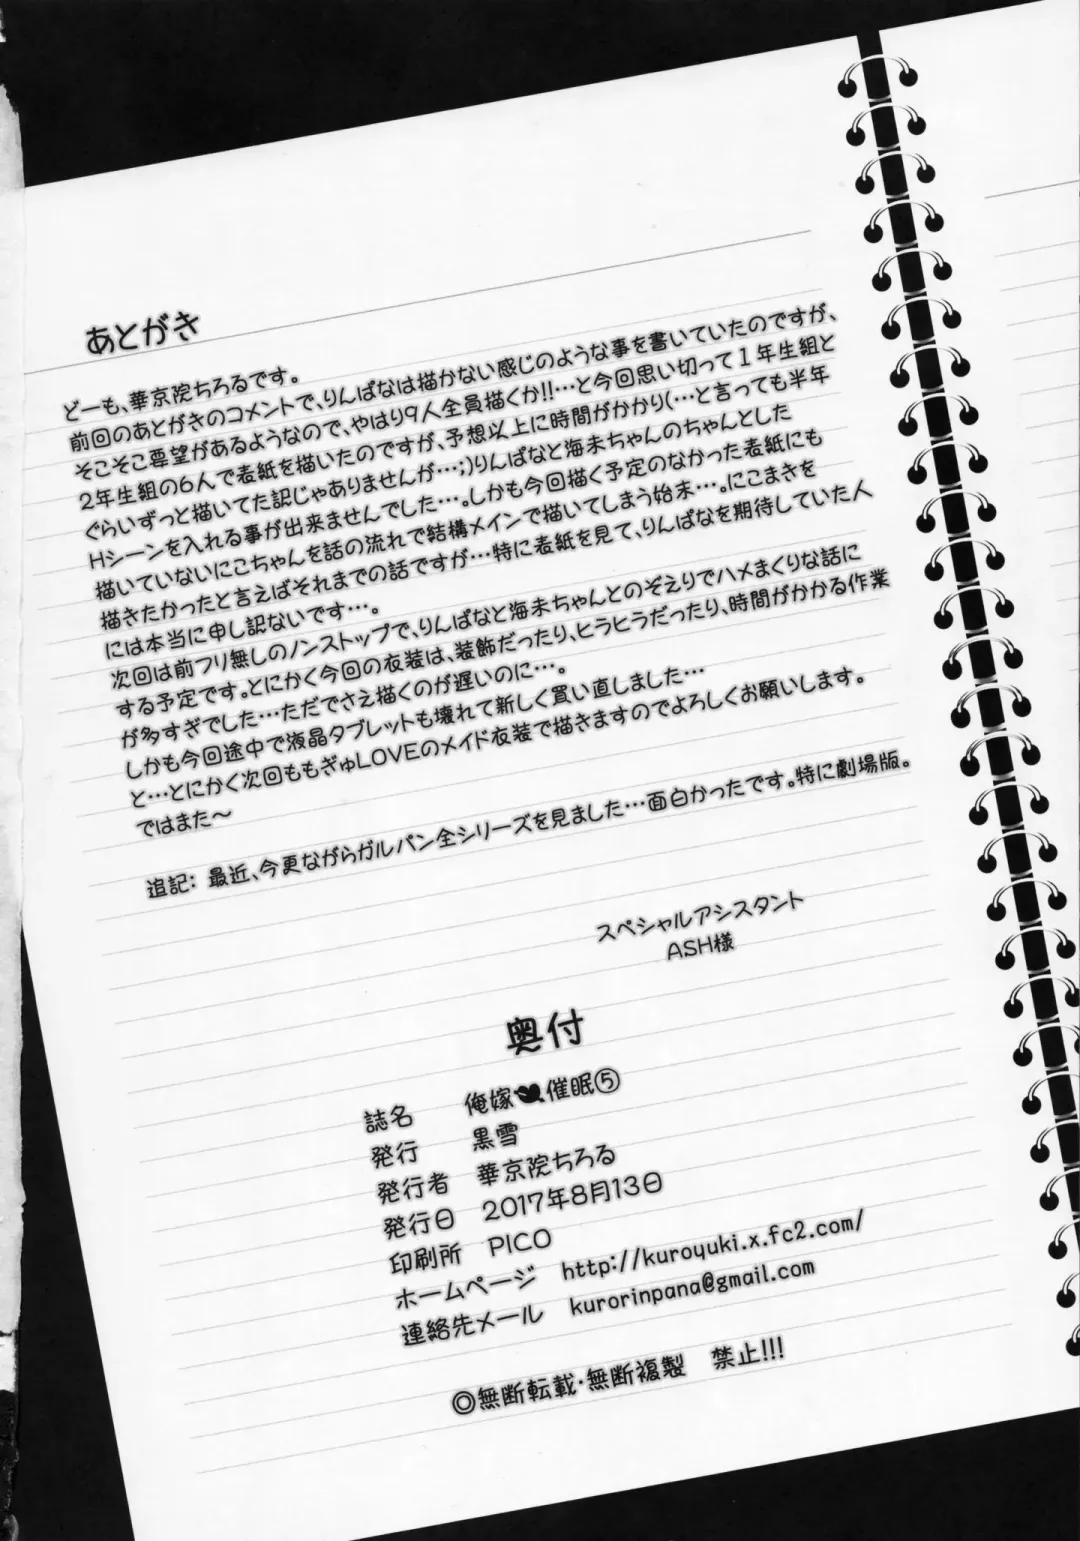 あとがき
どーも、華京院ちろるです。
前回のあとがきのコメントで、りんぱなは描かない感じのような事を書いていたのですが、
そこそこ要望があるようなので、やはり9人全員描くか!!…と今回思い切って1年生組と
2年生組の6人で表紙を描いたのですが、予想以上に時間がかかり(…と言っても半年
ぐらいずっと描いてた訳じゃありませんが…;)りんぱなと海未ちゃんのちゃんとした
Hシーンを入れる事が出来ませんでした…。しかも今回描く予定のなかった表紙にも
描いていないにこちゃんを話の流れで結構メインで描いてしまう始末…。にこまきを
描きたかったと言えばそれまでの話ですが…特に表紙を見て、りんぱなを期待していた人
には本当に申し訳ないです…。
次回は前フリ無しのノンストップで、りんぱなと海未ちゃんとのぞえりでハメまくりな話に
する予定です。とにかく今回の衣装は、装飾だったり、ヒラヒラだったり、時間がかかる作業
が多すぎでした…ただでさえ描くのが遅いのに…。
しかも今回途中で液晶タブレットも壊れて新しく買い直しました…
と…とにかく次回ももぎゅLOVEのメイド衣装で描きますのでよろしくお願いします。
ではまた〜
追記: 最近、今更ながらガルパン全シリーズを見ました…面白かったです。特に劇場版。
スペシャルアシスタント
ASH様
奥付
誌名 俺嫁催眠⑤
発行 黒雪
発行者 華京院ちろる
発行日 2017年8月13日
印刷所 PICO
ホームページ http://kuroyuki.x.fc2.com/
連絡先メール kurorinpana@gmail.com
◎無断転載・無断複製 禁止!!!